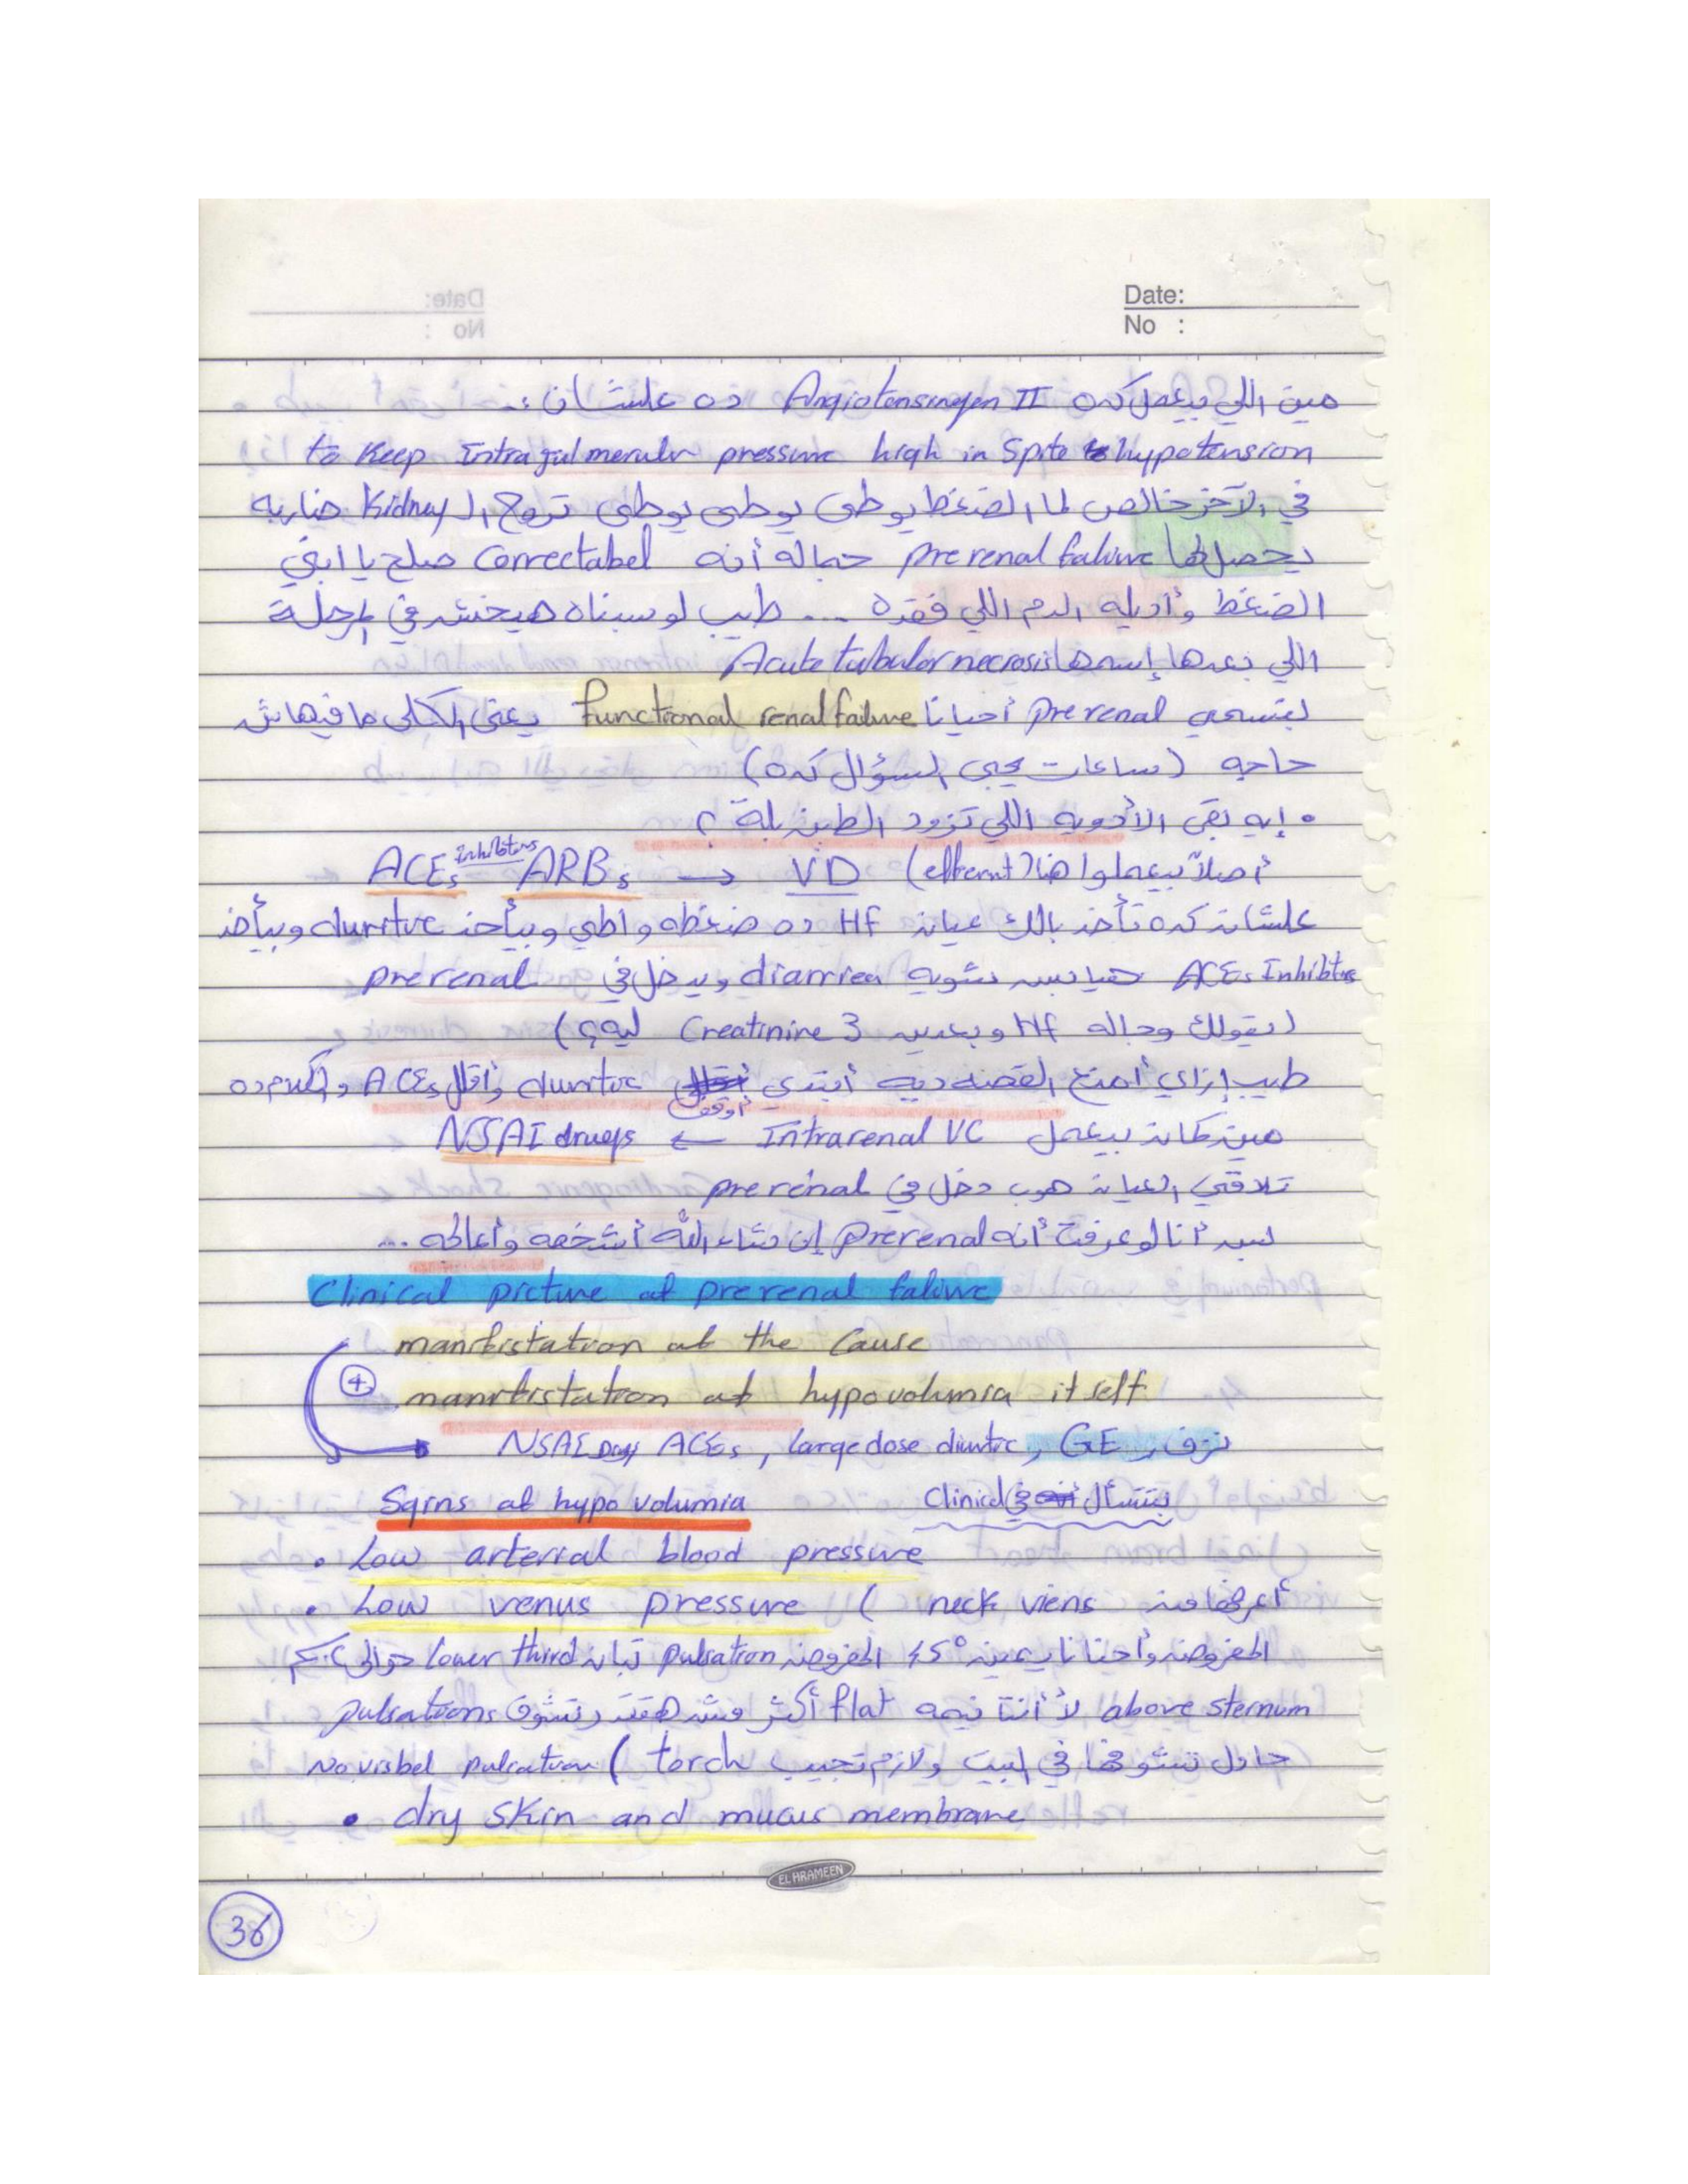 Date:
No :
مين اللي بيعمل كده Angiotensinogen II ده علشان :-
to Keep Intraglumerular pressure high in Spite to hypotension
في الآخر خالص لما الضغط يوطى يوطى يوطى تروح الـ Kidney ضاربه
يحصل لها prerenal failure جماله أنه Correctabel صلح يا ابني
الضغط وأديله الدم اللي فقده ... طيب لو سبناه هيخش في المرحلة
اللي بعدها إسمها Acute tubulor necrosis
بتسمي prerenal أحيانا functional renal failure يعني الكلى مافيهاش
حاجه (ساعات يجي السؤال كده)
• إيه بقى الأدويه اللي تزود الطين بلة ؟
أصلاً بيعملوا هنا (efferent) VD ← ARBs ACEs Inhibitors
علشان كده تأخذ بالك عيان Hf ده ضغطه واطي وبيأخذ duritve وبيأخذ
ACEs Inhibitors شويه diarriea ويدخل في prerenal
(يقولك وجاله Hf وبعدين Creatinine 3 ليه؟)
طيب إزاي أمنع القصه ديه أبتدي أوقف duritve وأقلل ACEs
مين كان بيعمل Intrarenal VC ← NSAI drugs
تلاقي العيان هوب دخل في prerenal
بس أنا لو عرفت أنه prerenal إن شاء الله أشخصه وأعالجه ...
Clinical picture of prerenal failure
manifistation of the Cause
+ manifistation of hypovolumia it self
NSAI Drugs ACEs , large dose diuritc , GE , نزف
Sgins of hypo volumia بتتسأل في Clinical
• Low arterial blood pressure
• Low venus pressure ( neck viens أعرفها من
المفروض وأحنا نايمين 45° المفروض pulsation تبان lower third حوالي
above sternum لأ أنت نيمه flat أكثر مش هتقدر تشوف pulsations
حاول تشوفها في البيت ولازم تجيب torch ) No visbel pulsation
• dry skin and mucus membrane
EL HRAMEEN
36